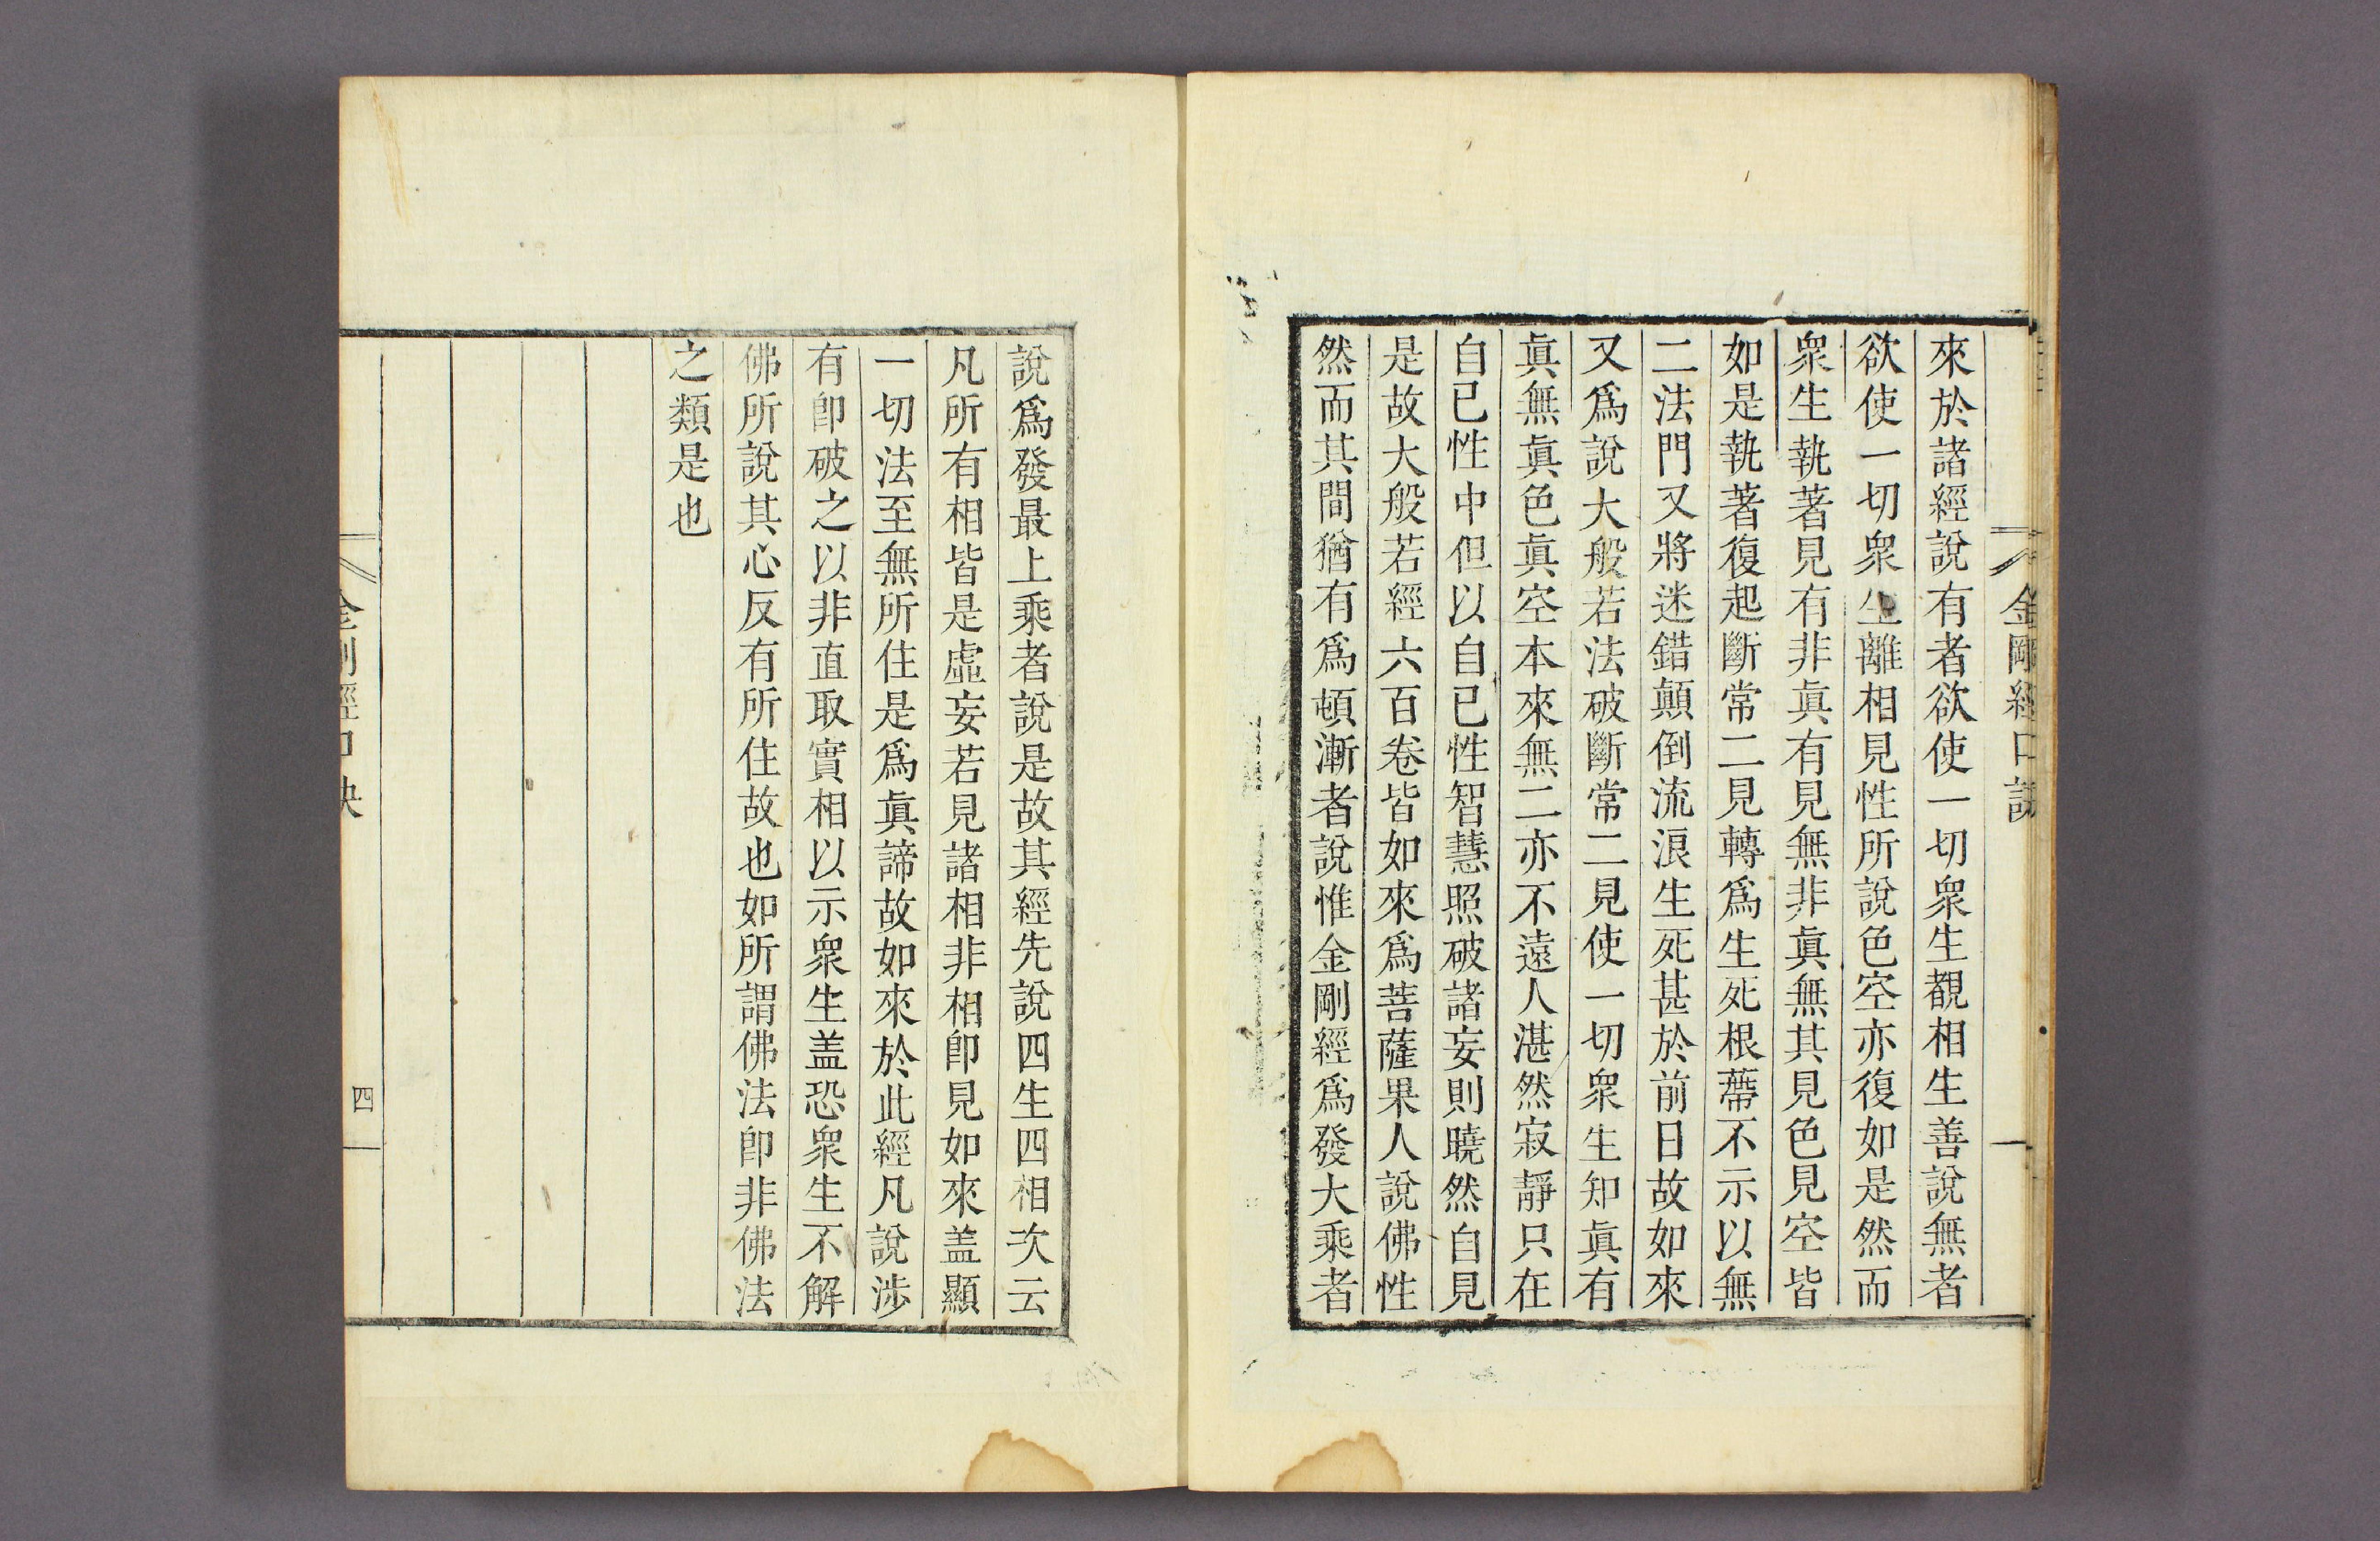 金剛經口訣
來於諸經說有者欲使一切衆生覩相生善說無者
欲使一切衆生離相見性所說色空亦復如是然而
衆生執著見有非眞有見無非眞無其見色見空皆
如是執著復起斷常二見轉爲生死根蔕不示以無
二法門又將迷錯顛倒流浪生死甚於前日故如來
又爲說大般若法破斷常二見使一切衆生知眞有
眞無眞色眞空本來無二亦不遠人湛然寂靜只在
自已性中但以自已性智慧照破諸妄則曉然自見
是故大般若經六百卷皆如來爲菩薩果人說佛性
然而其間猶有爲頓漸者說惟金剛經爲發大乘者
說爲發最上乘者說是故其經先說四生四相次云
凡所有相皆是虛妄若見諸相非相卽見如來盖顯
一切法至無所住是爲眞諦故如來於此經凡說涉
有卽破之以非直取實相以示衆生盖恐衆生不解
佛所說其心反有所住故也如所謂佛法卽非佛法
之類是也
金剛經口訣
四